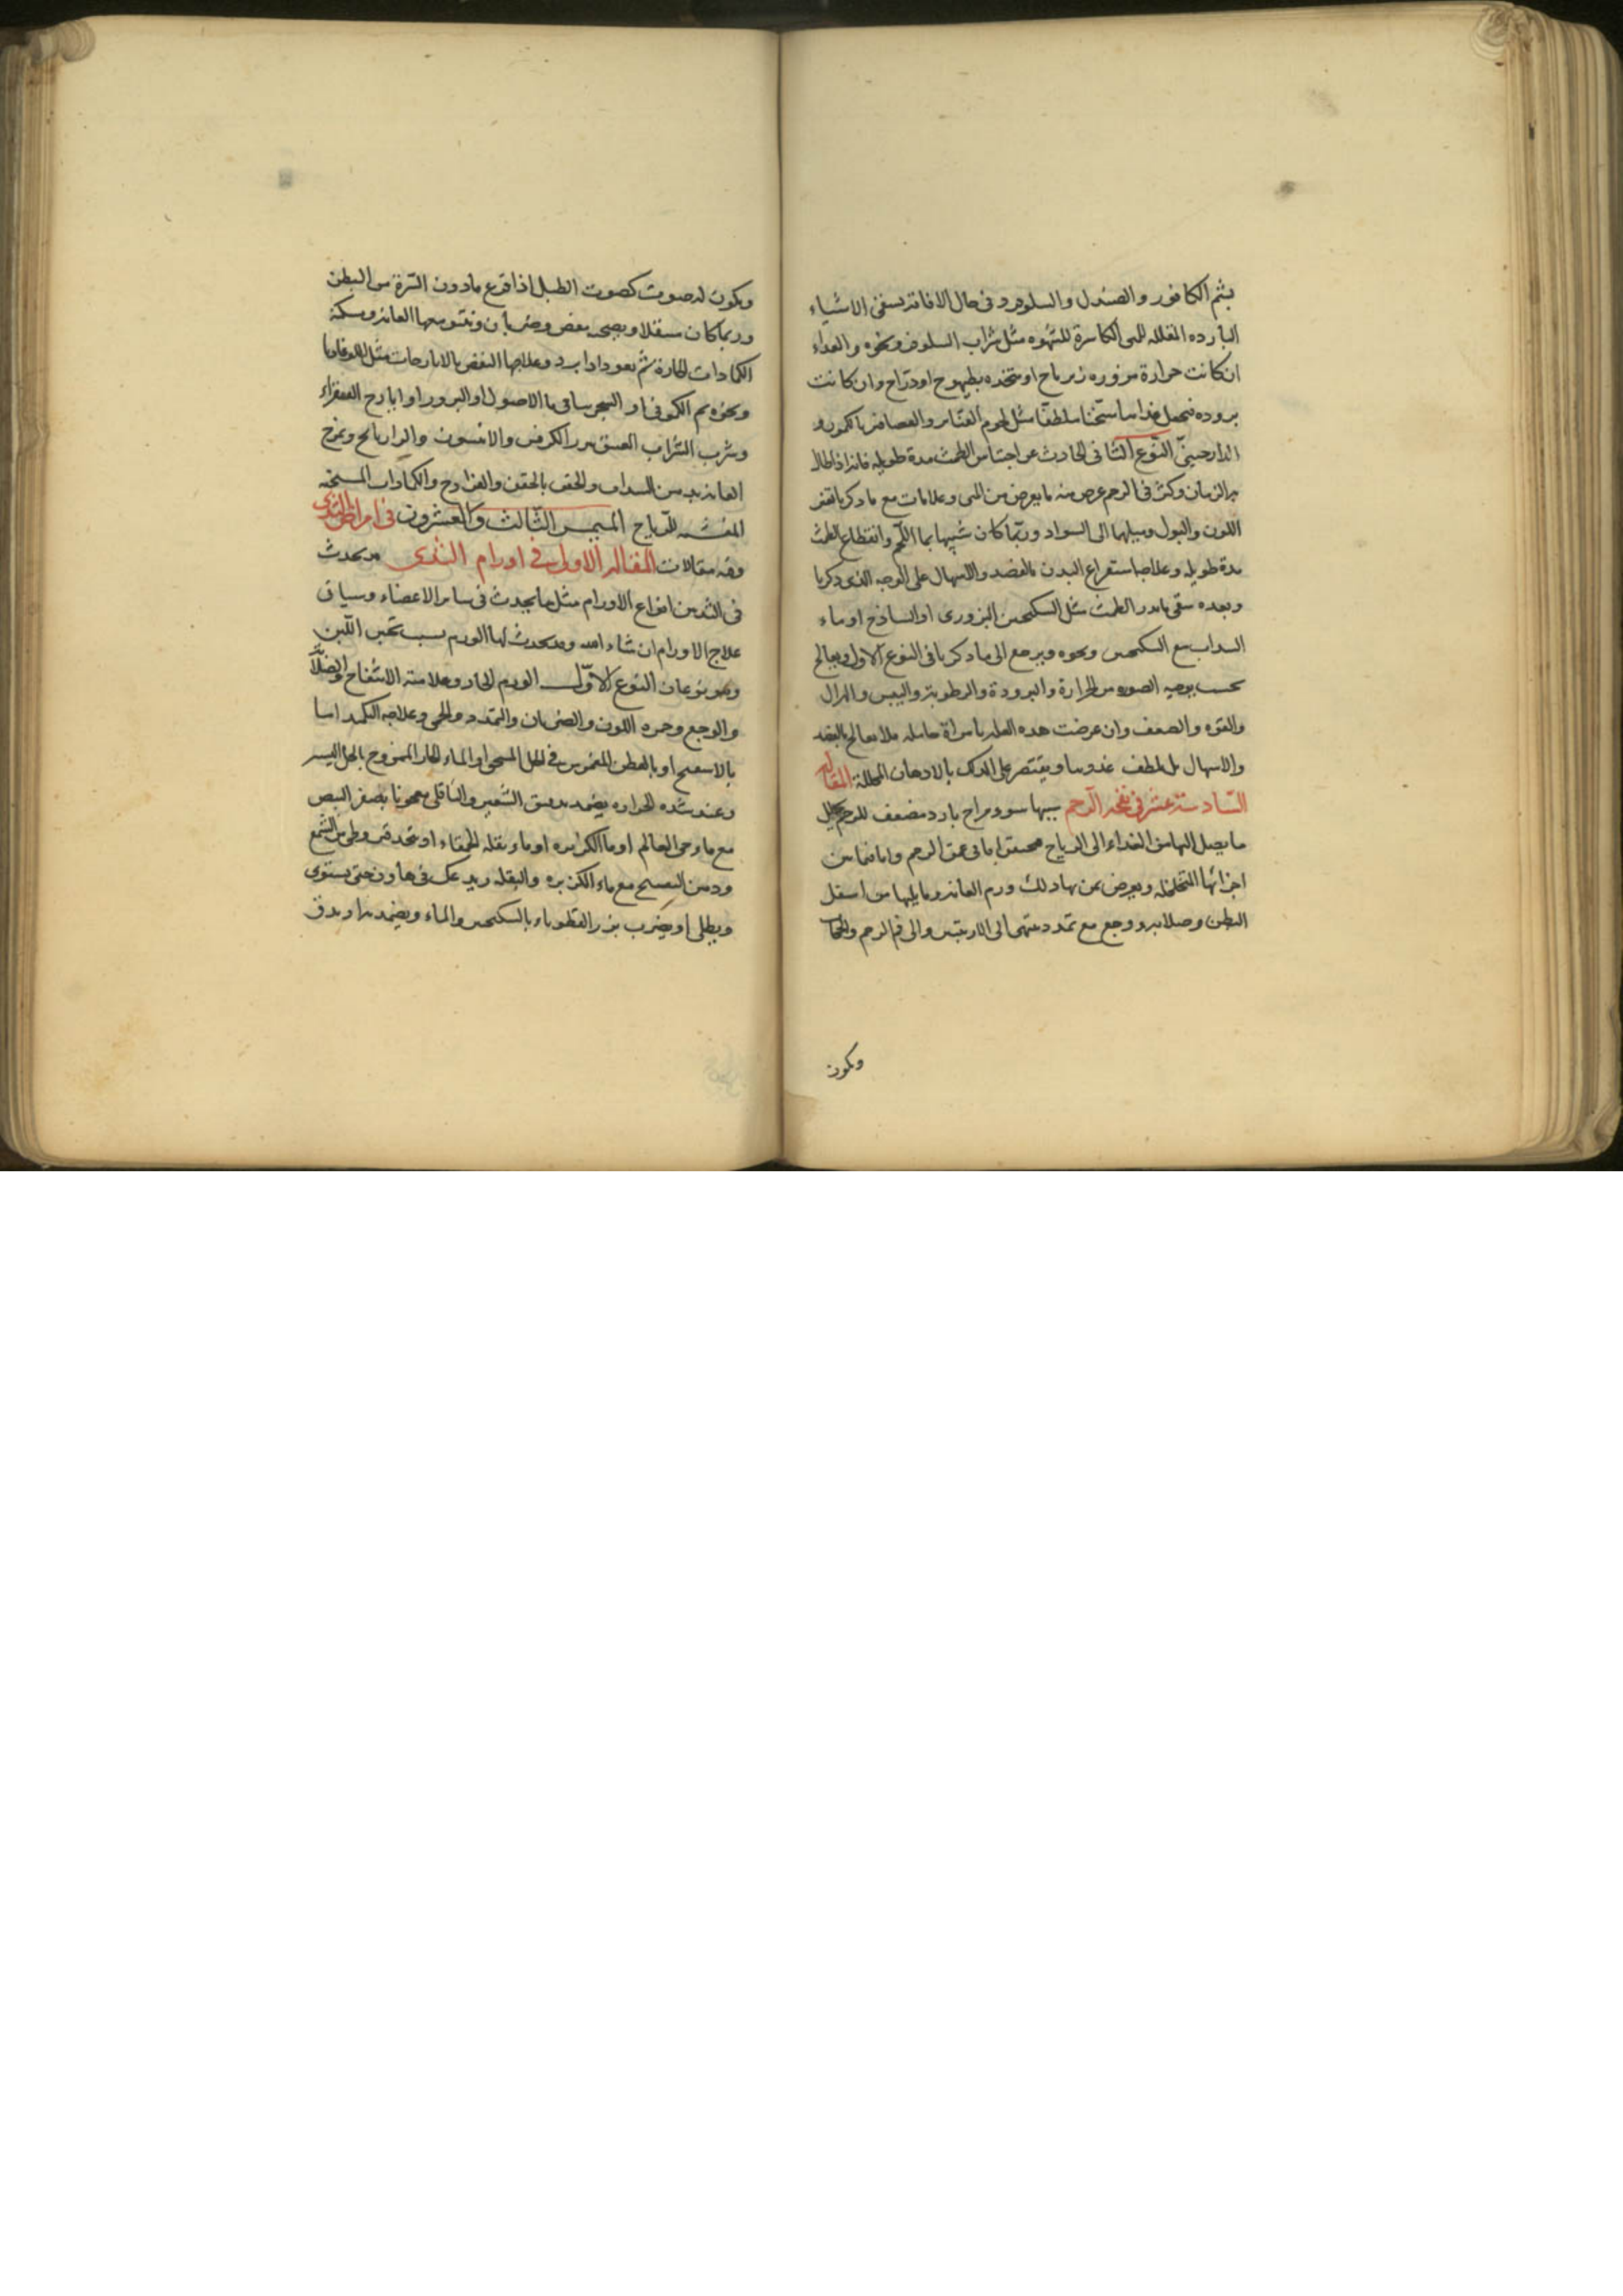 بشم الكافور والصندل والسلوورد وفى حال الافاقه يسقى الاشياء
البارده المقلله للمى الكاسرة للشهوه مثل شراب السلوفر ونحوه والغداء
ان كانت حرارة مزوره زيرباج او متخذه بطيهوج او دراج وان كانت
بروده فيجعل غذاها مسخنا ملطفا مثل لحوم القنابر والعصافير بالكمون و
الدارجينى النوع الثانى الحادث عن احتباس الطمث مدة طويله فانه اذا طال
به الزمان وكثر فى الرحم عرض منه ما يعرض من المى وعلامات مع ما ذكرنا تغير
اللون والبول وميلهما الى السواد وربما كان شبيها بماء اللحم وانقطاع الطمث
مدة طويله وعلاجها استفراغ البدن بالفصد والاسهال على الوجه الذى ذكرنا
وبعده سقى ما يدر الطمث مثل السكنجبين البزورى او الساذج او ماء
السداب مع السكنجبين ونحوه ويرجع الى ما ذكرنا فى النوع الاول ويعالج
بحسب يوجبه الصوره من الحرارة والبرودة والرطوبة واليبس والهزال
والقوه والضعف وان عرضت هذه العله بامراة حامله فلا يعالج بالفصد
والاسهال بل يلطف غذوها ويقتصر على الدلك بالادهان المحللة المقاله
السادسة عشر فى نفخه الرحم سببها سوء مزاج بارد مضعف للرحم يحيل
ما يصل اليها من الغذاء الى الرياح محتبسة اما فى عمق الرحم واما فيما بين
اجزائها المتخلخله ويعرض عن ذلك ورم العانه وما يليها من اسفل
البطن وصلابه ووجع مع تمدد ينتهى الى الاربيتين والى فم الرحم والحجاب
ويكون
ويكون له صوت كصوت الطبل اذا قرع ما دون السرة من البطن
وربما كان منتقلا ويصحبه مغص وضربان وينتو معها العانه ويسكنه
الكمادات الحارة ثم يعود اذا برد وعلاجها النفض بالايارجات مثل اللوغاديا
ونحوه ثم الكمونى او السجرينا فى ماء الاصول او البزور او ايارج الفيقراء
وشرب الشراب العتيق بزر الكرفس والانيسون والرازيانج ويمرخ
العانه بدهن السداب والحقن بالحقن والفرازج والكمادات المسخنه
المفششه للرياح الميمر الثالث والعشرون فى امراض الثدى
وفيه مقالات المقاله الاولى فى اورام الثدى قد يحدث
فى الثديين انواع الاورام مثل ما يحدث فى سائر الاعضاء وسياتى
علاج الاورام ان شاء الله وقد يحدث لها الورم بسبب تجبن اللبن
وهو نوعان النوع الاول الورم الحار وعلامته الانتفاخ والصلابة
والوجع وحمره اللون والضربان والتمدد والحمى وعلاجه التكميد اما
بالاسفنج او بالقطن المغموس فى الخل المسخن او الماء الحار الممزوج بالخل اليسير
وعند شده الحراره يضمد بدقيق الشعير والباقلى معجونا بصفر البيض
مع ماء حى العالم او ماء الكزبره او ماء بقله الحمقاء او يتخذ قيروطى من الشمع
ودهن البنفسج مع ماء الكزبره والبقله ويدعك فى هاون حتى يستوى
ويطلى او يضرب بزر القطوناء بالسكنجبين والماء ويضمد به او يدق